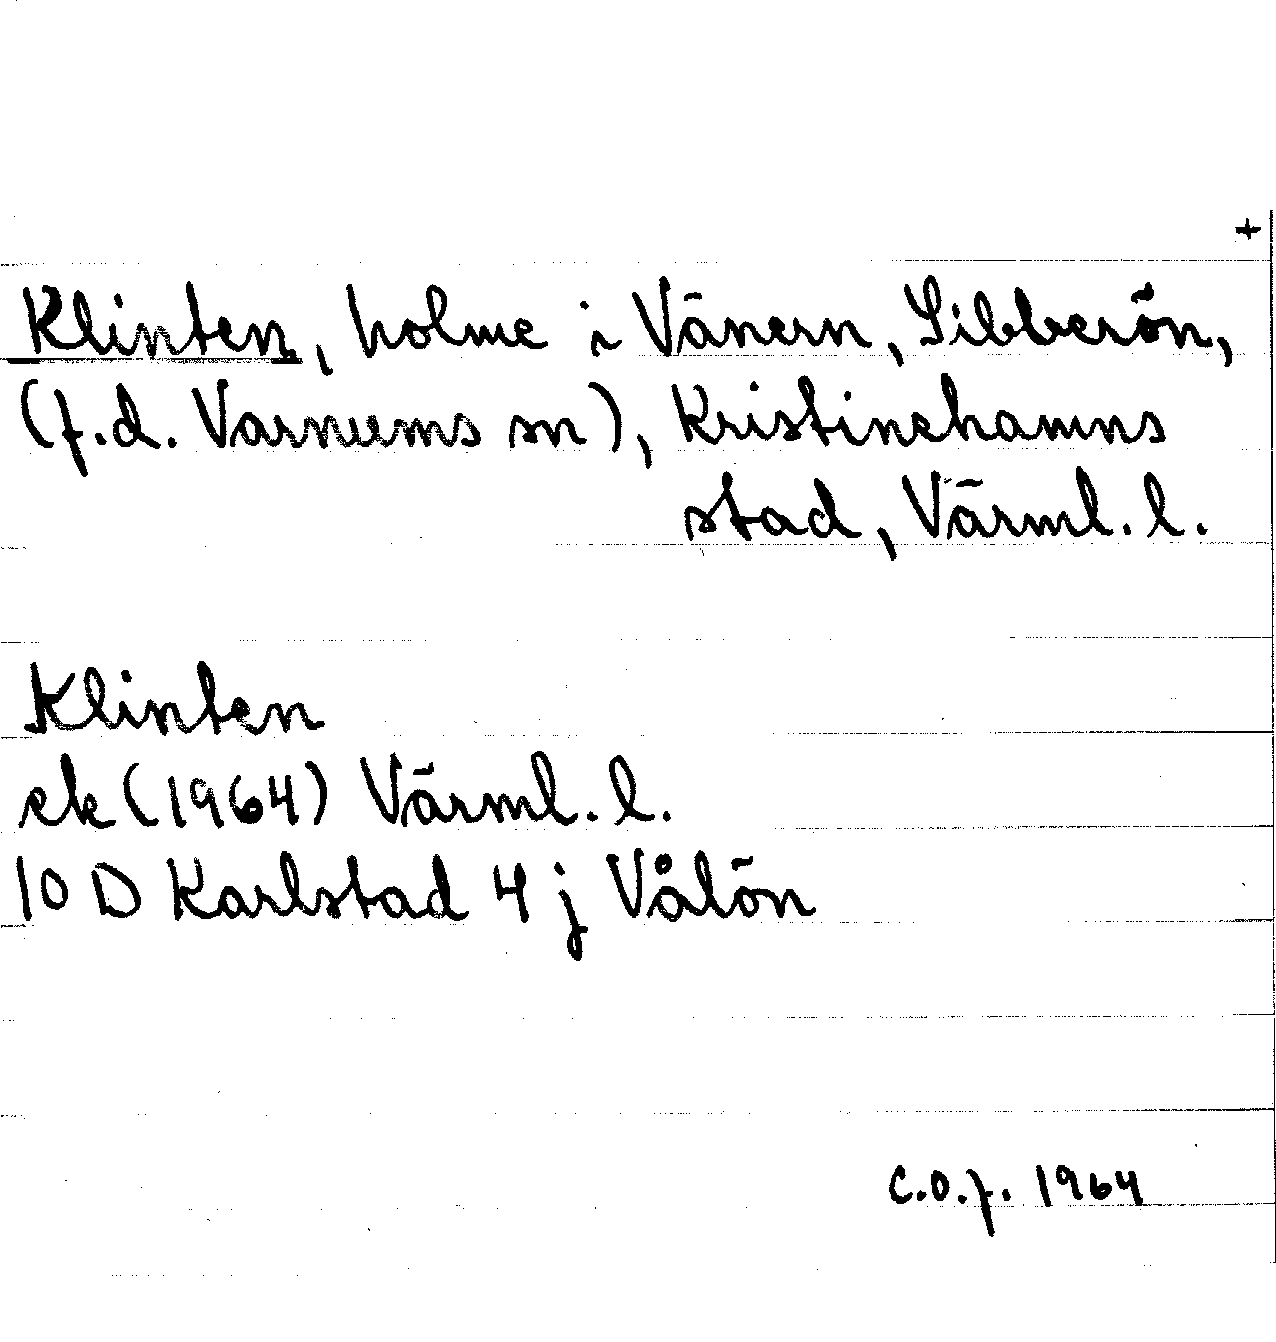 +
Klinten, holme i Vänern, Sibberön,
(f.d. Varnums sn), Kristinehamns
stad, Värml. l.
Klinten
ek (1964) Värml. l.
10 D Karlstad 4 j Vålön
C.O.f. 1964